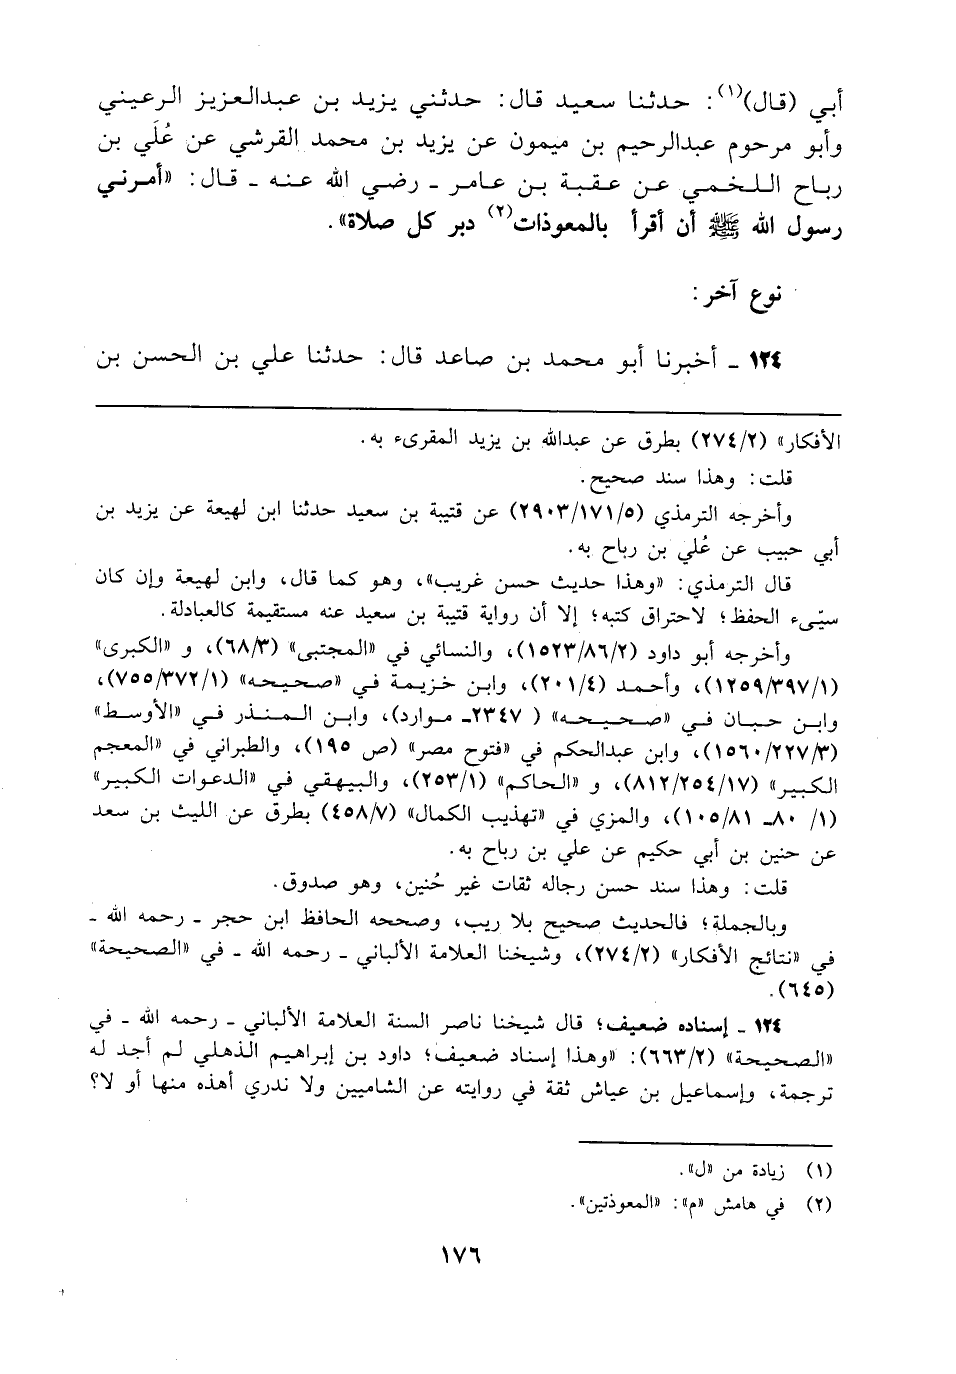 أبي (قال)(١): حدثنا سعيد قال: حدثني يزيد بن عبدالعزيز الرعيني
وأبو مرحوم عبدالرحيم بن ميمون عن يزيد بن محمد القرشي عن عُلَي بن
رباح اللخمي عن عقبة بن عامر ـ رضي الله عنه ـ قال: «أمرني
رسول الله ﷺ أن أقرأ بالمعوذات(٢) دبر كل صلاة».
نوع آخر:
١٢٤ ـ أخبرنا أبو محمد بن صاعد قال: حدثنا علي بن الحسن بن
الأفكار» (٢/٢٧٤) بطرق عن عبدالله بن يزيد المقرىء به.
قلت: وهذا سند صحيح.
وأخرجه الترمذي (٥/١٧١/٢٩٠٣) عن قتيبة بن سعيد حدثنا ابن لهيعة عن يزيد بن
أبي حبيب عن عُلي بن رباح به.
قال الترمذي: «وهذا حديث حسن غريب»، وهو كما قال، وابن لهيعة وإن كان
سيّىء الحفظ؛ لاحتراق كتبه؛ إلا أن رواية قتيبة بن سعيد عنه مستقيمة كالعبادلة.
وأخرجه أبو داود (٢/٨٦/١٥٢٣)، والنسائي في «المجتبى» (٣/٦٨)، و «الكبرى»
(١/٣٩٧/١٢٥٩)، وأحمد (٤/٢٠١)، وابن خزيمة في «صحيحه» (١/٣٧٢/٧٥٥)،
وابن حبان في «صحيحه» ( ٢٣٤٧ـ موارد)، وابن المنذر في «الأوسط»
(٣/٢٢٧/١٥٦٠)، وابن عبدالحكم في «فتوح مصر» (ص ١٩٥)، والطبراني في «المعجم
الكبير» (١٧/٢٥٤/٨١٢)، و «الحاكم» (١/٢٥٣)، والبيهقي في «الدعوات الكبير»
(١/ ٨٠ـ ٨١/١٠٥)، والمزي في «تهذيب الكمال» (٧/٤٥٨) بطرق عن الليث بن سعد
عن حنين بن أبي حكيم عن علي بن رباح به.
قلت: وهذا سند حسن رجاله ثقات غير حُنين، وهو صدوق.
وبالجملة؛ فالحديث صحيح بلا ريب، وصححه الحافظ ابن حجر ـ رحمه الله ـ
في «نتائج الأفكار» (٢/٢٧٤)، وشيخنا العلامة الألباني ـ رحمه الله ـ في «الصحيحة»
(٦٤٥).
١٢٤ ـ إسناده ضعيف؛ قال شيخنا ناصر السنة العلامة الألباني ـ رحمه الله ـ في
«الصحيحة» (٢/٦٦٣): «وهذا إسناد ضعيف؛ داود بن إبراهيم الذهلي لم أجد له
ترجمة، وإسماعيل بن عياش ثقة في روايته عن الشاميين ولا ندري أهذه منها أو لا؟
(١) زيادة من «ل».
(٢) في هامش «م»: «المعوذتين».
١٧٦